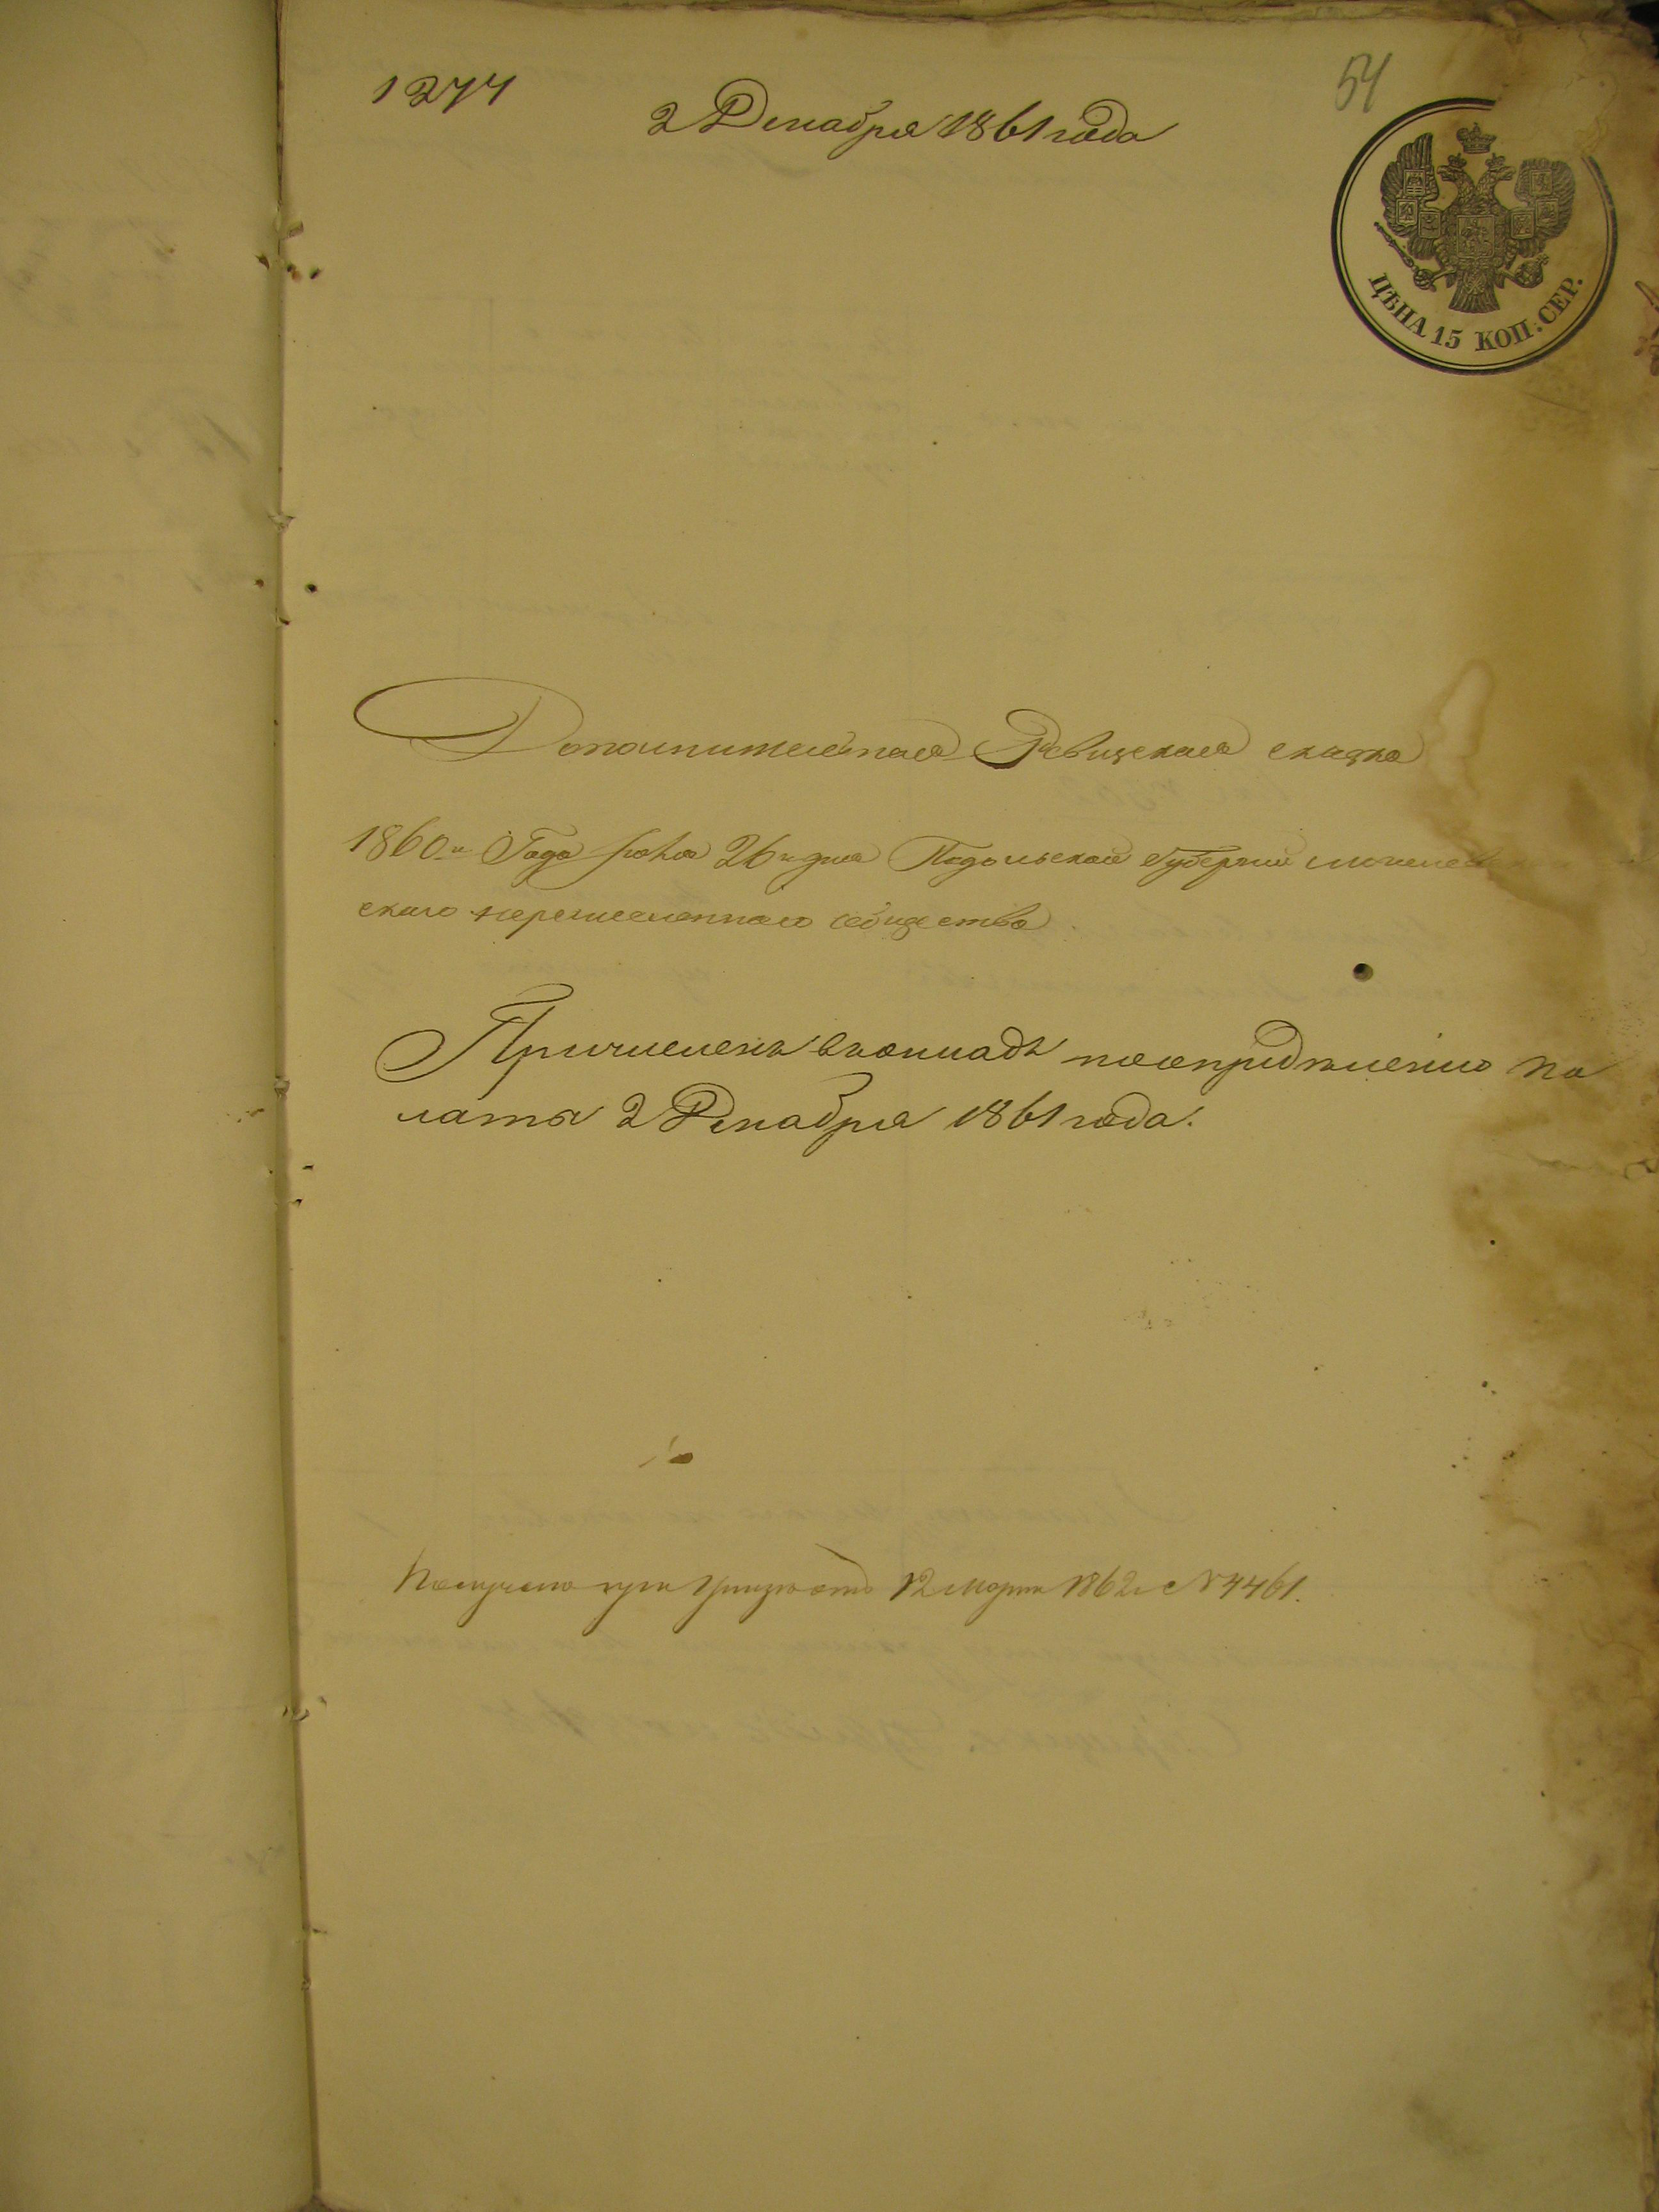 1277
54
2 Декабря 1861 года
ЦѢНА 15 КОП: СЕР.
Дополнительная Ревизская сказка
1860го Года 26го дня Подольской Губерніи
скаго еврейскаго общества
Причисленъ въ окладъ по опредѣленію Па
латы 2 Декабря 1861 года.
Получено при 12 Марта 1862 г № 4461.